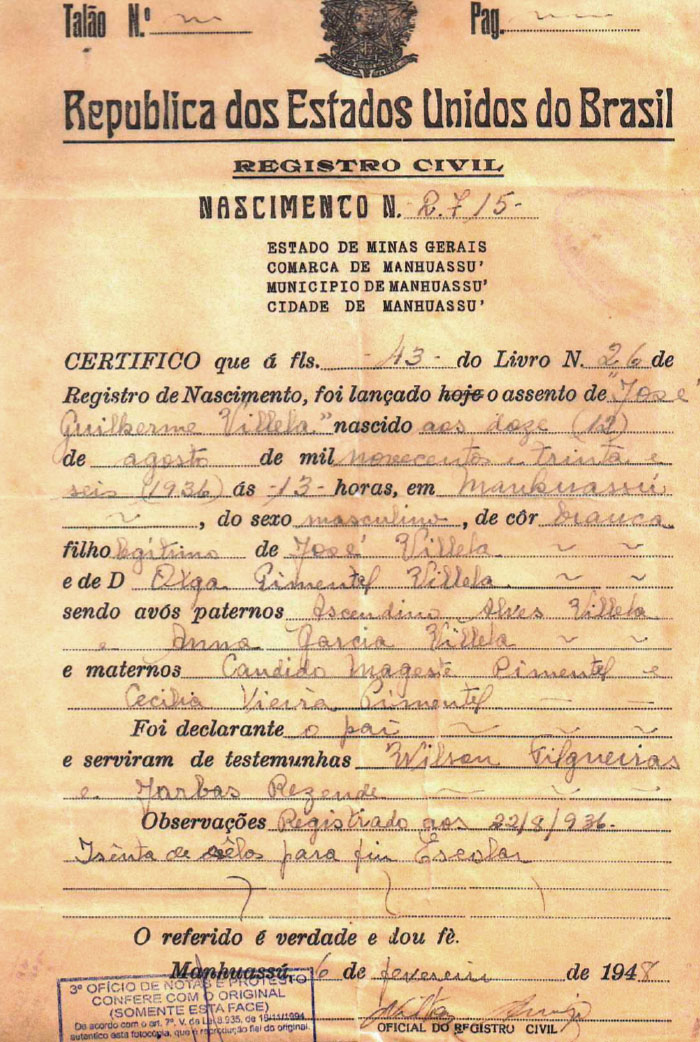 Talão N.º Pag.
Republica dos Estados Unidos do Brasil
REGISTRO CIVIL
NASCIMENTO N. 2.715-
ESTADO DE MINAS GERAIS
COMARCA DE MANHUASSU'
MUNICIPIO DE MANHUASSU'
CIDADE DE MANHUASSU'
CERTIFICO que á fls. -43- do Livro N. 26 de
Registro de Nascimento, foi lançado hoje o assento de "José
Guilherme Villela" nascido aos doze (12)
de agosto de mil novecentos e trinta e
seis (1936) ás -13- horas, em Manhuassú
, do sexo masculino, de côr branca
filho legítimo de José Villela
e de D Olga Pimentel Villela
sendo avós paternos Ascendino Alves Villela
e Anna Garcia Villela
e maternos Candido Magesté Pimentel e
Cecilia Vieira Pimentel
Foi declarante o pai
e serviram de testemunhas Wilson Filgueiras
e Jarbas Rezende
Observações Registrado aos 22/8/936-
Isenta de sêlos para fim Escolar
O referido é verdade e dou fè.
Manhuassú, 6 de fevereiro de 1948
OFICIAL DO REGISTRO CIVIL
3º OFÍCIO DE NOTAS E PROTESTO
CONFERE COM O ORIGINAL
(SOMENTE ESTA FACE)
De acordo com o art. 7º, V, da Lei 8.935, de 18/11/1994,
autentico esta fotocópia, que é reprodução fiel do original.